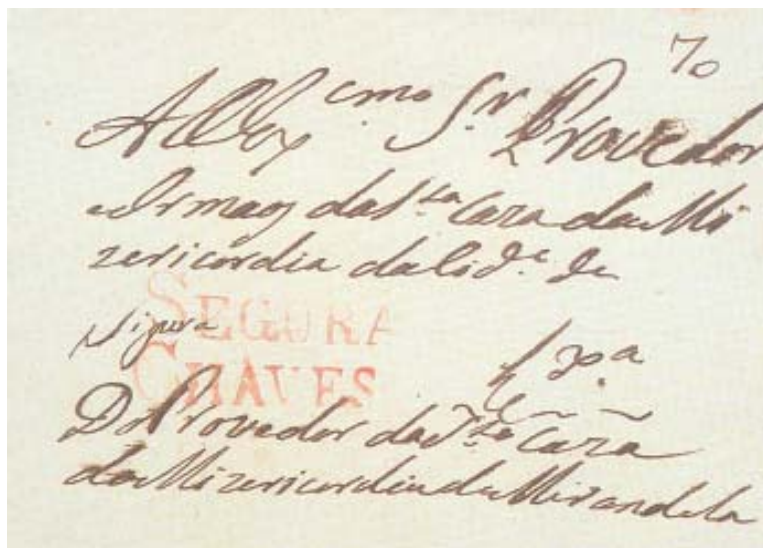 70
Ao Ex cmo Sr. Provedor
e Irmaos da Sta Caza da Mi
zericordia da Cid.e de
SEGURA
Segura
CHAVES
Do Provedor da Sta Caza
da Mizericordia de Mirandela